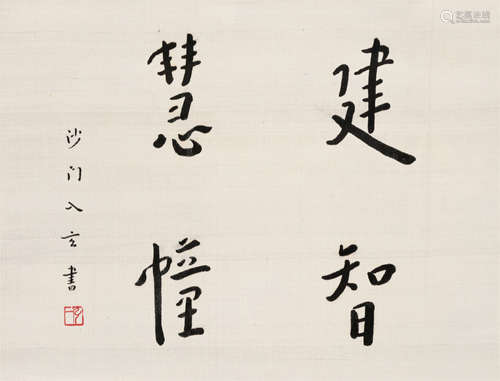 建智
慧幢
沙门入玄书